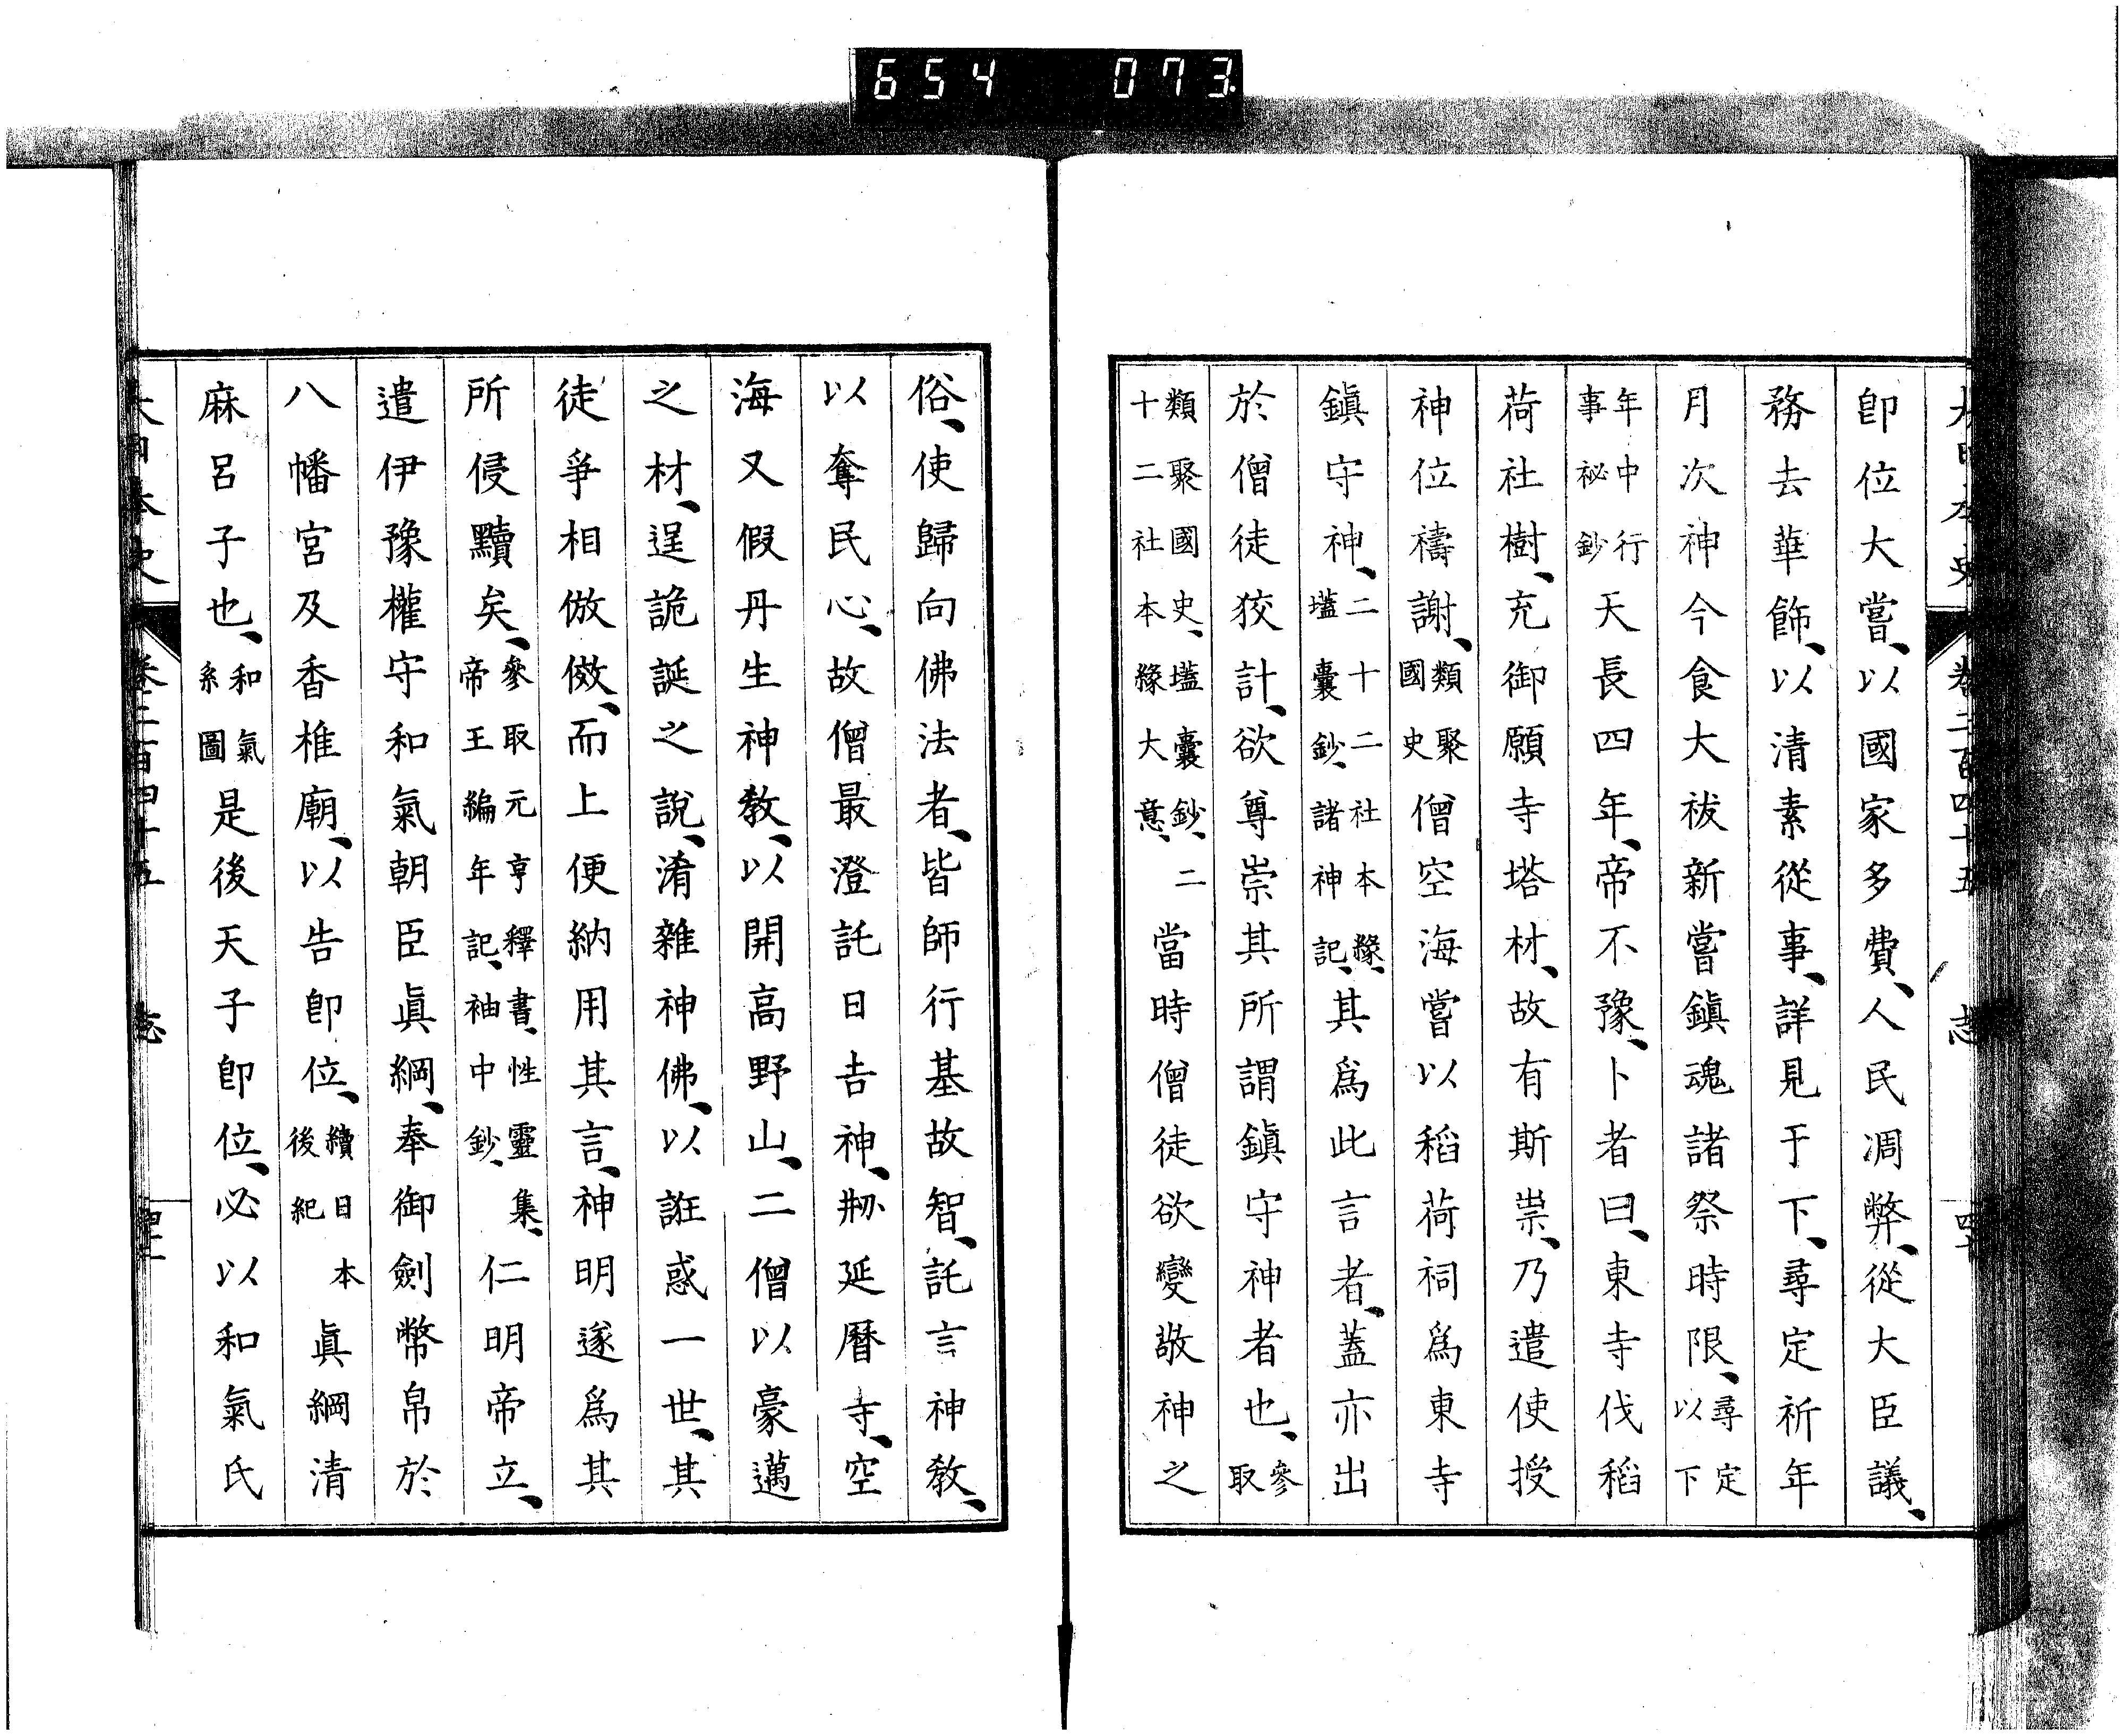 654 073
大日本史 卷二百四十五 志
卽位大嘗、以國家多費、人民凋弊、從大臣議、
務去華飾、以清素從事、詳見于下、尋定祈年
月次神今食大祓新嘗鎭魂諸祭時限、尋定以下
年中行事祕鈔天長四年、帝不豫、卜者曰、東寺伐稻
荷社樹、充御願寺塔材、故有斯祟、乃遣使授
神位禱謝、類聚國史僧空海嘗以稻荷祠爲東寺
鎭守神、二十二社本緣、壒囊鈔、諸神記、其爲此言者、蓋亦出
於僧徒狡計、欲尊崇其所謂鎭守神者也、參取
類聚國史、壒囊鈔、二十二社本緣大意、當時僧徒欲變敬神之
俗、使歸向佛法者、皆師行基故智、託言神敎、
以奪民心、故僧最澄託日吉神、剏延曆寺、空
海又假丹生神敎、以開高野山、二僧以豪邁
之材、逞詭誕之說、淆雜神佛、以誑惑一世、其
徒爭相倣傚、而上便納用其言、神明遂爲其
所侵黷矣、參取元亨釋書、性靈集、帝王編年記、袖中鈔、仁明帝立、
遣伊豫權守和氣朝臣眞綱、奉御劍幣帛於
八幡宮及香椎廟、以告卽位、續日本後紀眞綱清
麻呂子也、和氣系圖是後天子卽位、必以和氣氏
大日本史 卷二百四十五 志